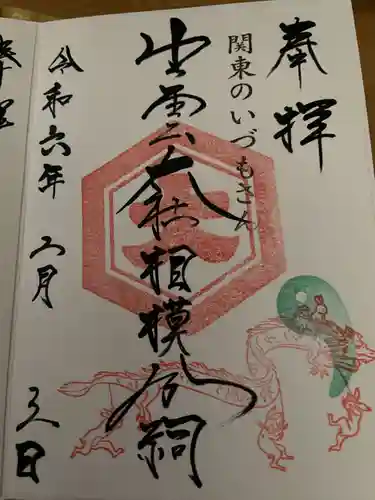 奉拝
関東のいづもさん
出雲大社相模分祠
大
令和六年 二月 二八日